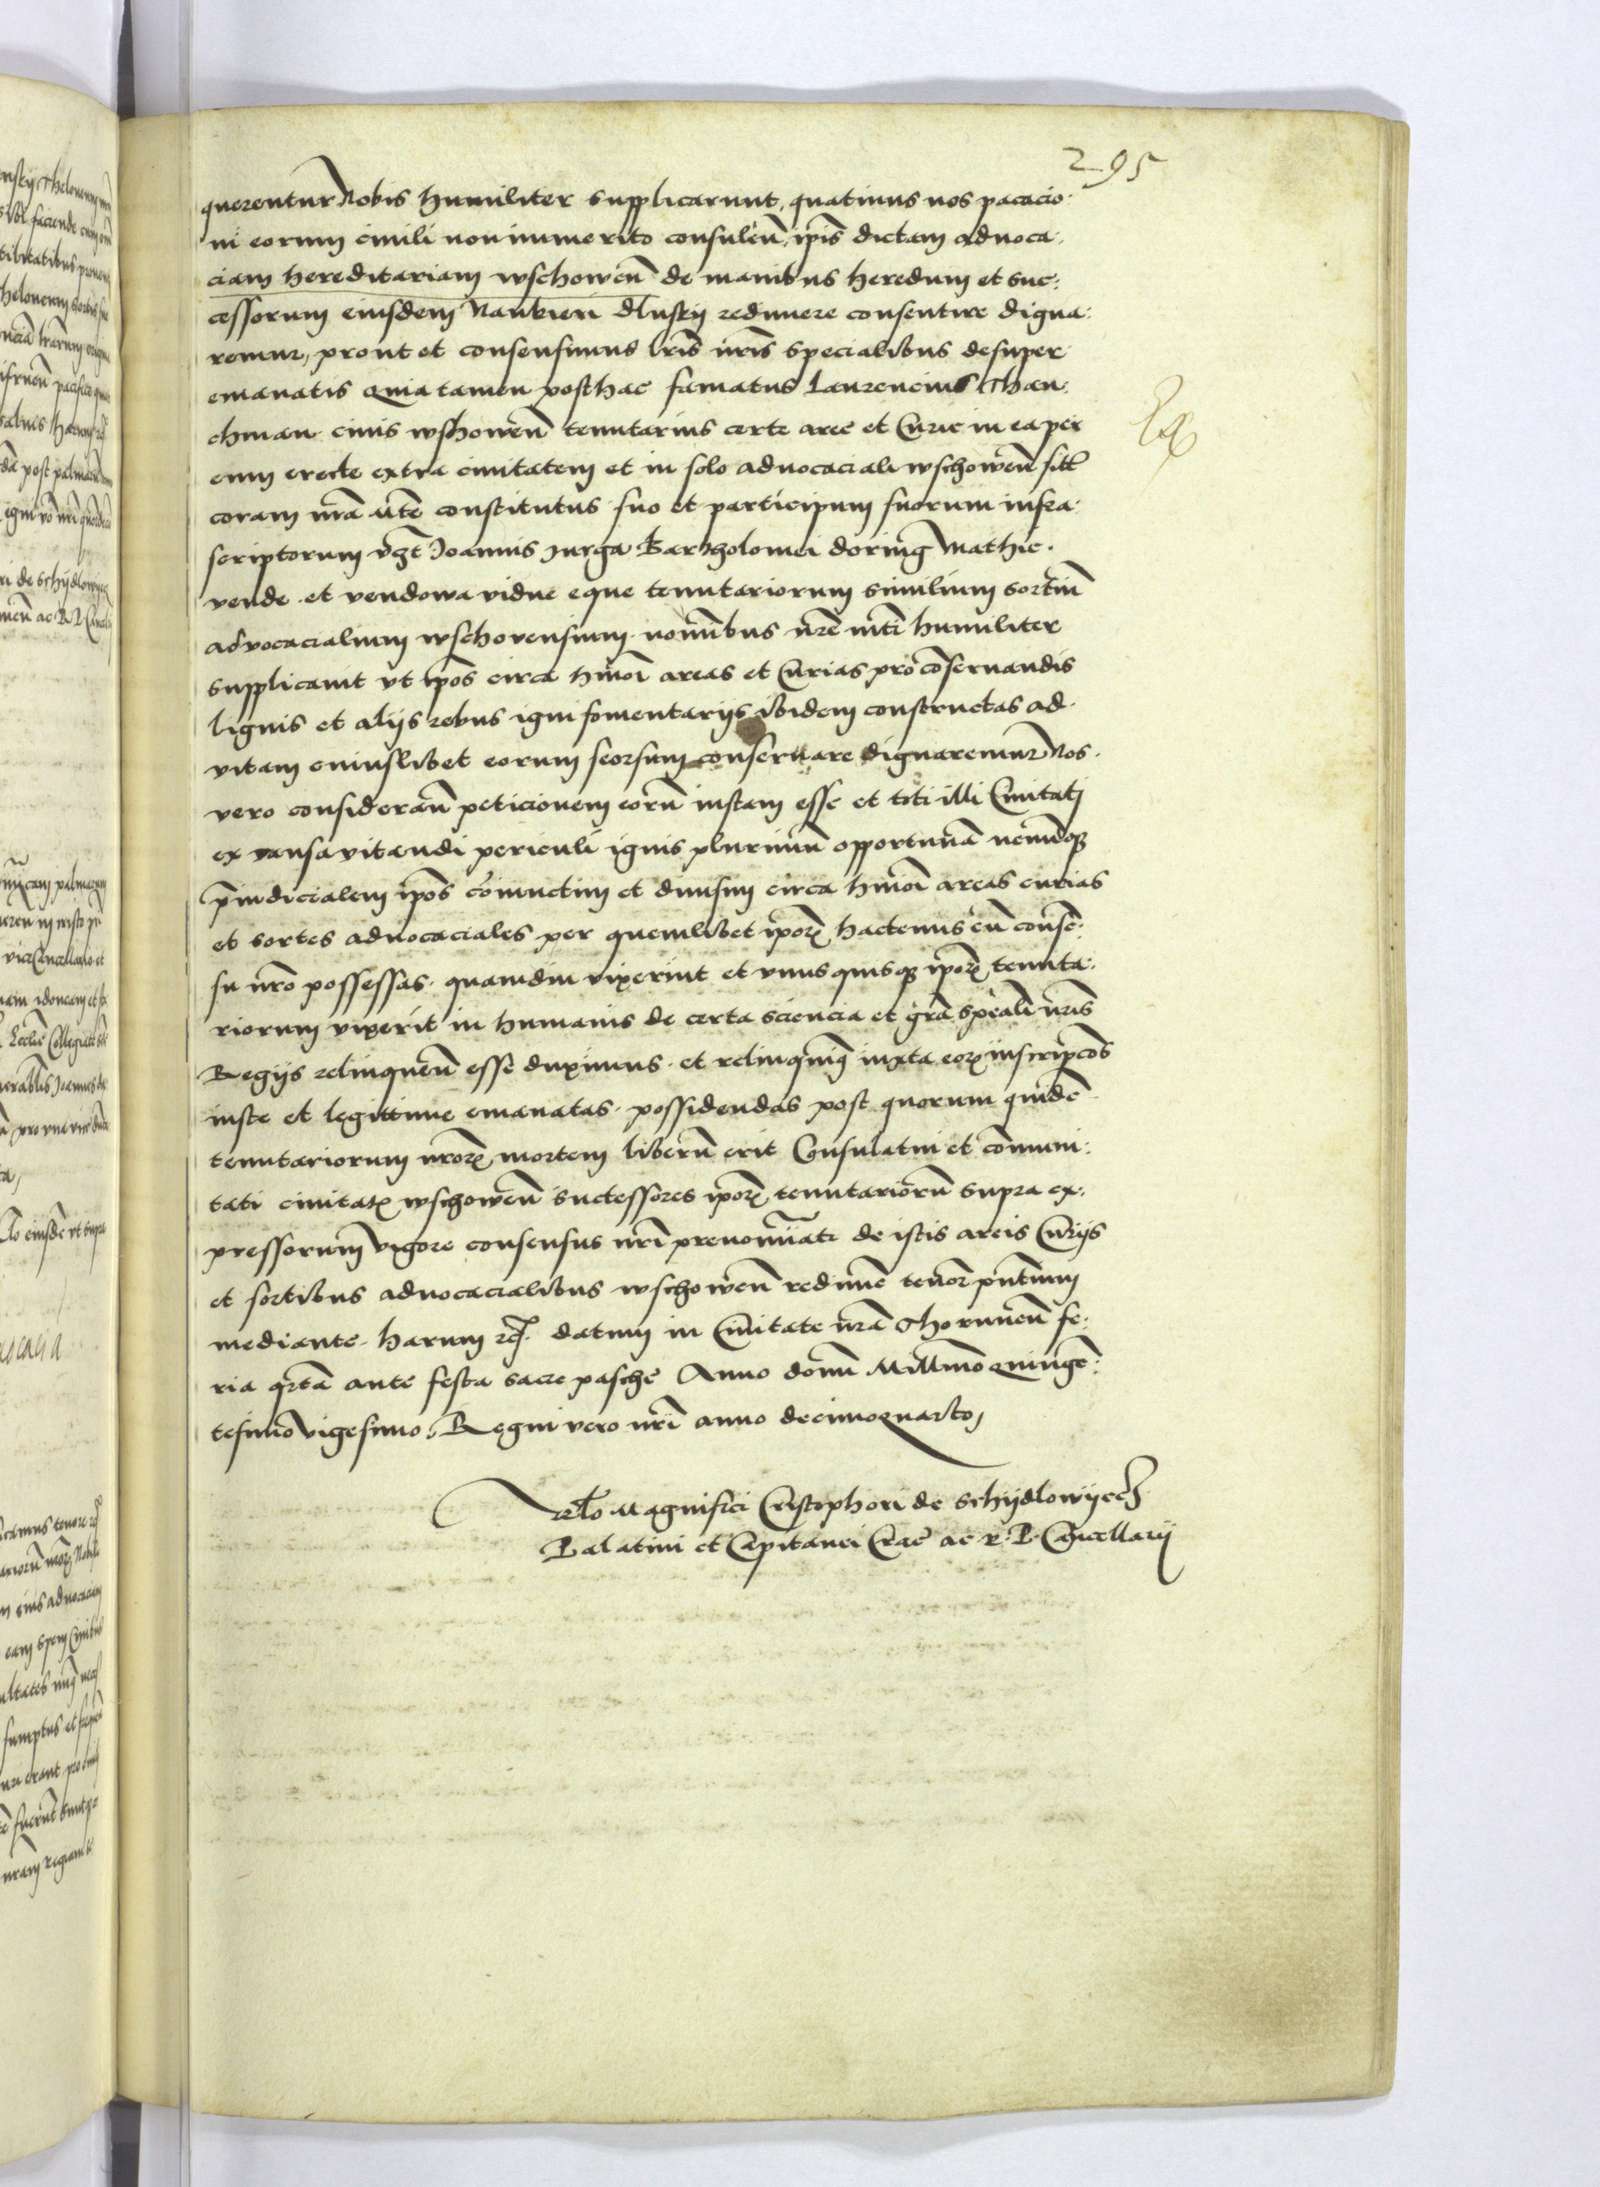 295
querentur Nobis humiliter supplicarunt, quatinus nos pacacio-
ni eorum ciuili non inmerito consulen̄ ip̄is dictam aduoca-
ciam hereditariam wschowen̄ de manibus heredum et suc-
cessorum eiusdem dlusky redimere consentire digna-
remur, prout et consensimus l̄ris n̄ris specialibus desuper
emanatis Quia tamen posthac famatus Laurencius Than-
chman ciuis wschowen̄ tenutarius certe aree et Curie in ea per
eum erecte extra ciuitatem et in solo aduocaciali wschowen̄ sitt̄
coram m̄ta n̄te constitutus suo et participum suorum infra-
scriptorum v̄z Joannis Jurga Bartholomei doring Mathie
vende et vendowa vidue eque tenutariorum similium sortiū
aduocacialium wschovensium nomībus n̄re m̄ti humiliter
supplicauit vt ip̄os circa hm̄oi areas et Curias pro conseruandis
lignis et alijs rebus igni fomentarijs ibidem constructas ad
vitam cuiuslibet eorum seorsum conseruare dignaremur Nos
vero consideran̄ peticionem eorū iustam esse et toti illi Ciuitati
ex causa vitandi periculi ignis plurimū opportunā neminiqȝ
p̄iudicialem ip̄os cōiunctim et diuisim circa hm̄oi areas curias
et sortes aduocaciales per quemlibet ip̄oꝝ hactenus cū consē-
su n̄ro possessas quamdiu vixerint et vnusquisqȝ ip̄oꝝ tenuta-
riorum vixerit in humanis de certa sciencia et gr̄a sp̄eali n̄ris
Regijs relinquen̄ esse duximus et relinquimȝ iuxta eoꝝ inscripc̄oēs
iuste et legittime emanatas possidendas post quorum quidē
tenutariorum n̄roꝝ mortem liberū erit Consulatui et cōmuni-
tati ciuitatꝭ wschowen̄ successores ip̄oꝝ tenutariorū supra ex-
pressorum vigore consensus n̄ri prenomīati de istis areis Curijs
et sortibus aduocacialibus wschowen̄ redimē tenor̄ p̄ntium
mediante harum datum in Ciuitate n̄ra Thorunen̄ fe-
ria q̄rta ante festa sacre pasche Anno domī Millm̄o quinge-
tesimo vigesimo, Regni vero n̄ri anno decimoquarto,
Rlo Magnifici Cristophori de Schydlowyecz
Palatini et Capitanei Crac̄ ac R. P. Cancellarij